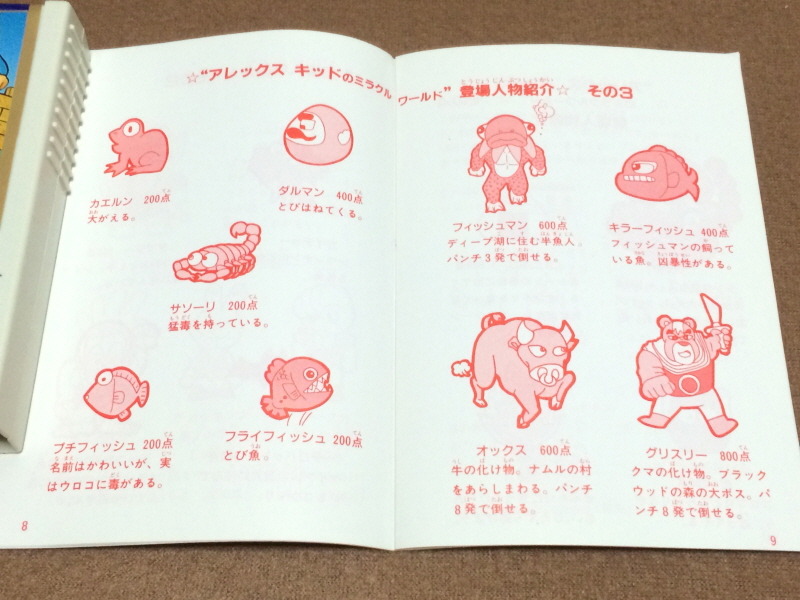 ☆“アレックス キッドのミラクル ワールド” 登場人物紹介☆ その3
カエルン 200点
大がえる。
ダルマン 400点
とびはねてくる。
サソーリ 200点
猛毒を持っている。
プチフィッシュ 200点
名前はかわいいが、実
はウロコに毒がある。
フライフィッシュ 200点
とび魚。
8
フィッシュマン 600点
ディープ湖に住む半魚人。
パンチ3発で倒せる。
キラーフィッシュ 400点
フィッシュマンの飼って
いる魚。凶暴性がある。
オックス 600点
牛の化け物。ナムルの村
をあらしまわる。パンチ
8発で倒せる。
グリスリー 800点
クマの化け物。ブラック
ウッドの森の大ボス。パ
ンチ8発で倒せる。
9